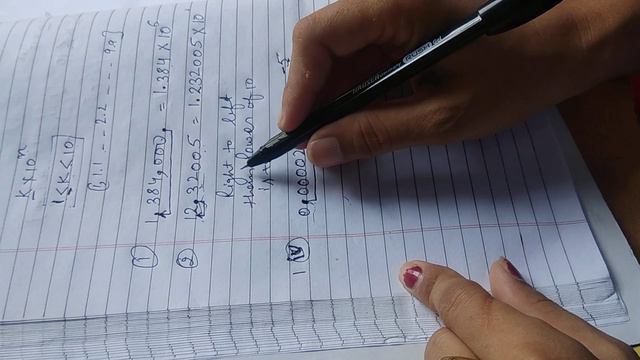 K × 10ⁿ
1 ≤ K < 10
(1, 1.1 - - 2.2 - - - - 9.9)
① 1,384,000, = 1.384 × 10⁶
② 12.32005 = 1.232005 × 10
Right to left
then power of 10
0.00002